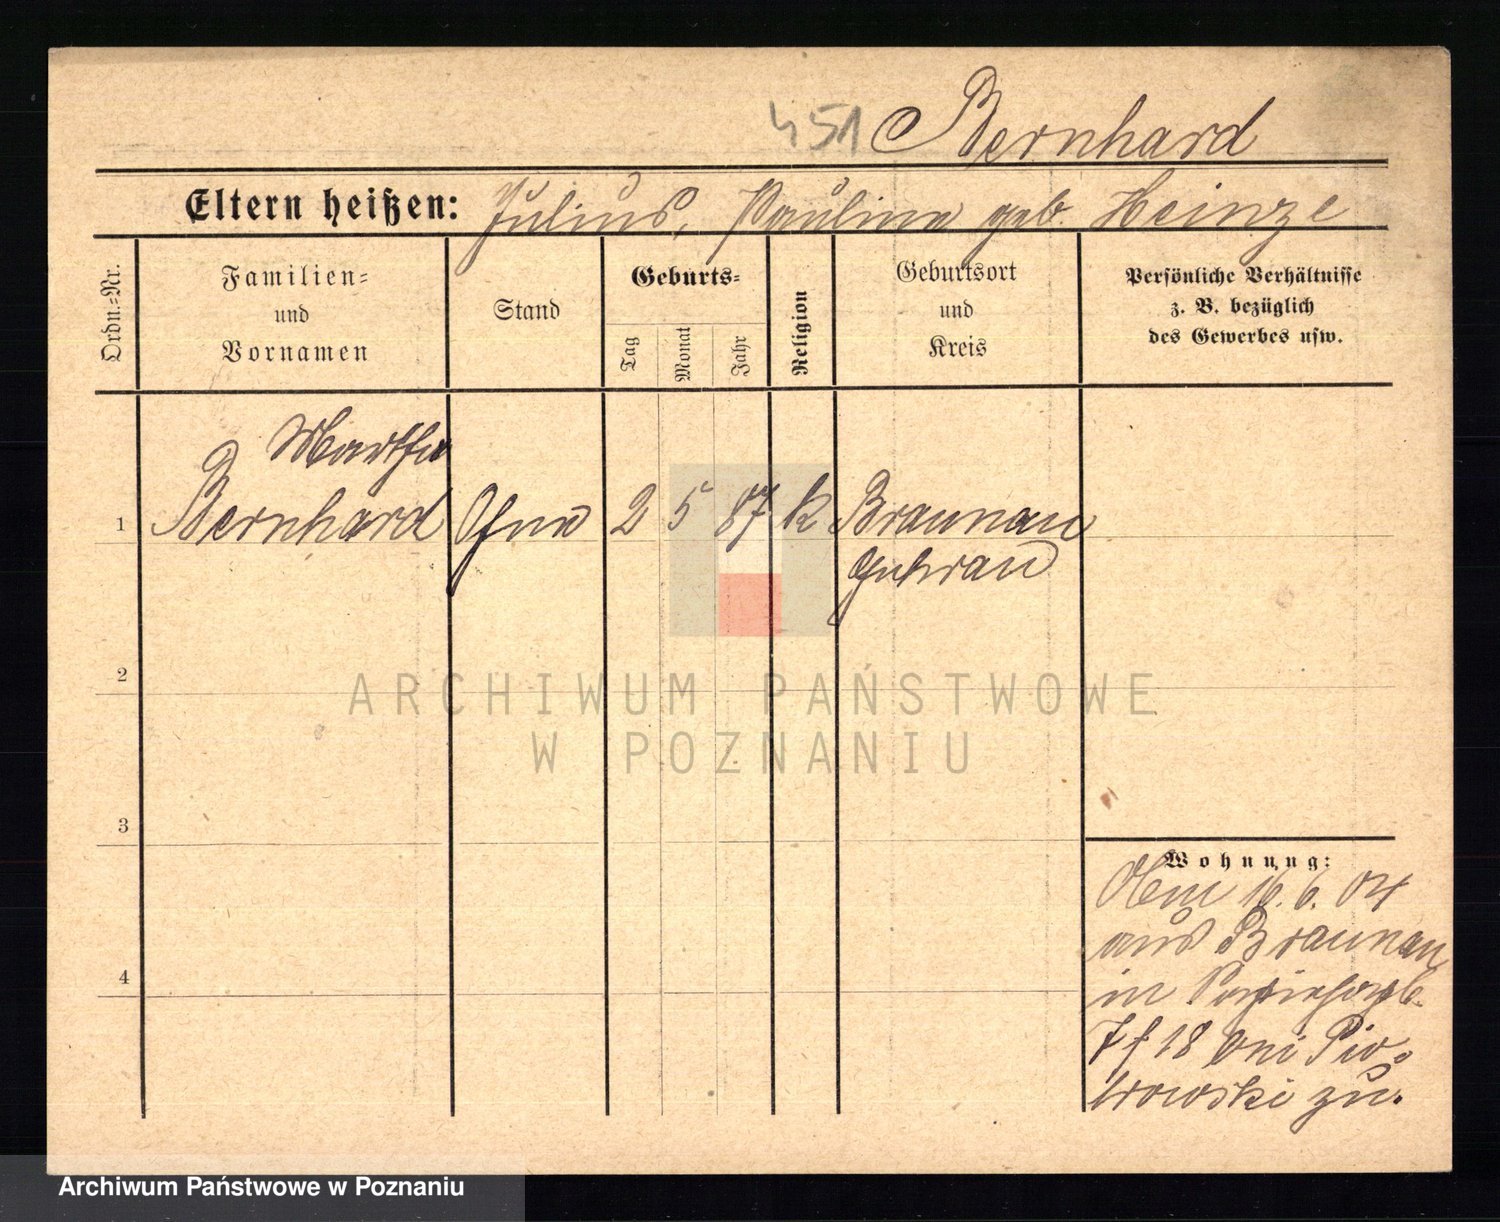 451 Bernhard
Eltern heißen: Julius, Pauline geb. Heinze
Ordn.-Nr.
Familien-
und
Vornamen
Stand
Geburts-
Tag
Monat
Jahr
Religion
Geburtsort
und
Kreis
Persönliche Verhältnisse
z. B. bezüglich
des Gewerbes usw.
Martha
1 Bernhard Ohne 2 5 87 k Braunau
Guhrau
2
3
4
Wohnung:
16. 6. 04
aus Braunau
in
18 bei Pio-
trowski zu.
ARCHIWUM PAŃSTWOWE
W POZNANIU
Archiwum Państwowe w Poznaniu